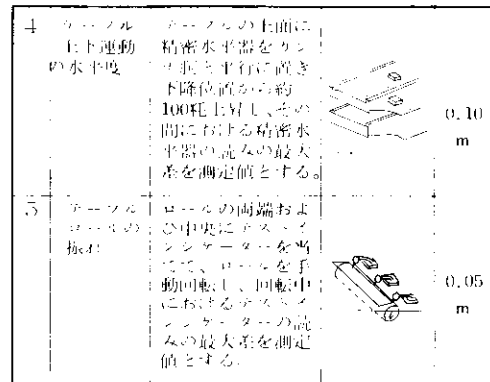 4
テーブル
上下運動
の水平度
テーブルの上面に
精密水平器をカン
ナ胴と平行に置き
下降位置から約
100粍上昇し、その
間における精密水
平器の読みの最大
差を測定値とする。
0.10
m
5
テーブル
ロールの
振れ
ロールの両端およ
び中央にテストイ
ンジケーターを当
てて、ロールを手
動回転し、回転中
におけるテストイ
ンジケーターの読
みの最大差を測定
値とする。
0.05
m